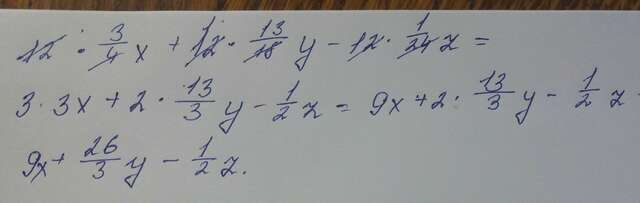 12 · 3/4 x + 12 · 13/18 y - 12 · 1/24 z =
3 · 3x + 2 · 13/3 y - 1/2 z = 9x + 2 · 13/3 y - 1/2 z
9x + 26/3 y - 1/2 z.